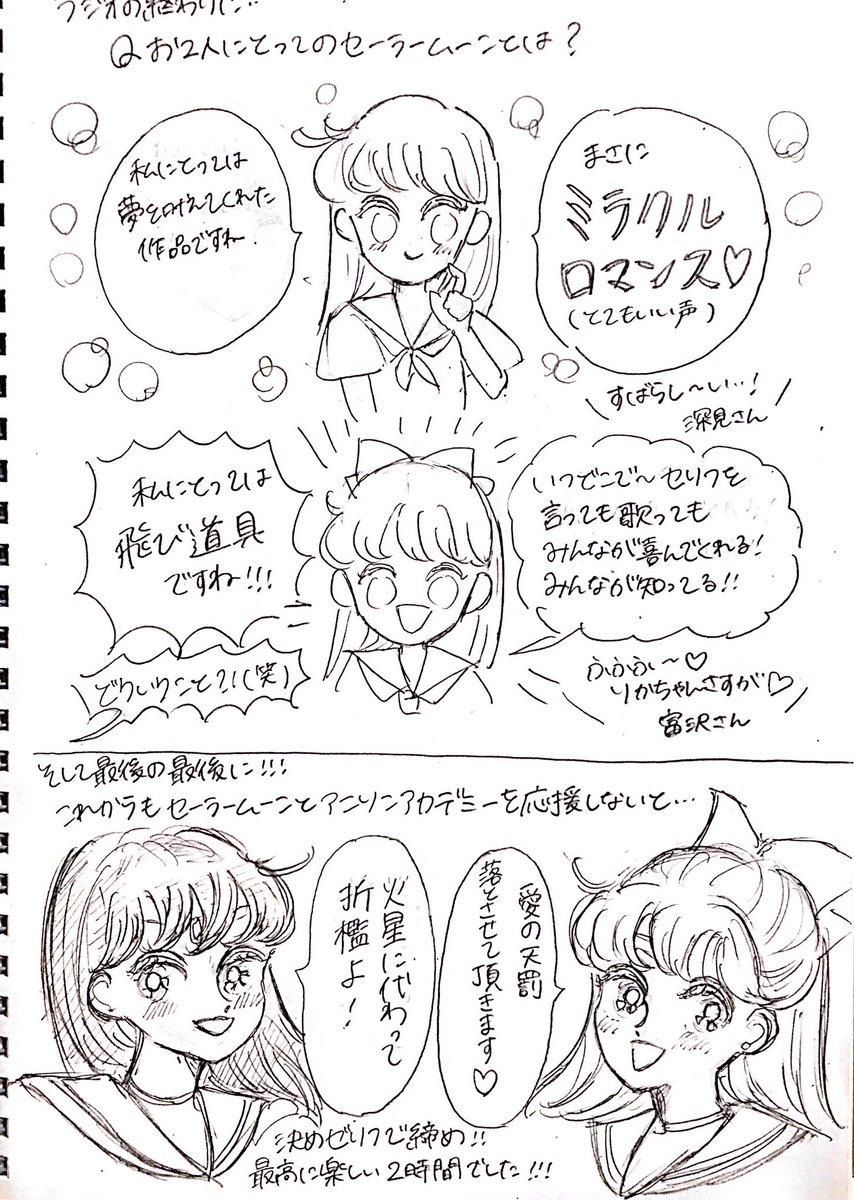 ラジオの終わりに…
Qお2人にとってのセーラームーンとは？
まさに
ミラクル
ロマンス♡
(とてもいい声)
私にとっては
夢を叶えてくれた
作品ですね.
すばらし〜い…!
深見さん
私にとっては
飛び道具
ですね!!!
いつどこで〜セリフを
言っても歌っても
みんなが喜んでくれる!
みんなが知ってる!!
どういうこと?!(笑)
ふふふ〜♡
りかちゃんさすが♡
富沢さん
そして最後の最後に!!!
これからもセーラームーンとアニソンアカデミーを応援しないと…
愛の天罰
落とさせて頂きます♡
火星に代わって
折檻よ!
決めゼリフで締め!!
最高に楽しい2時間でした!!!